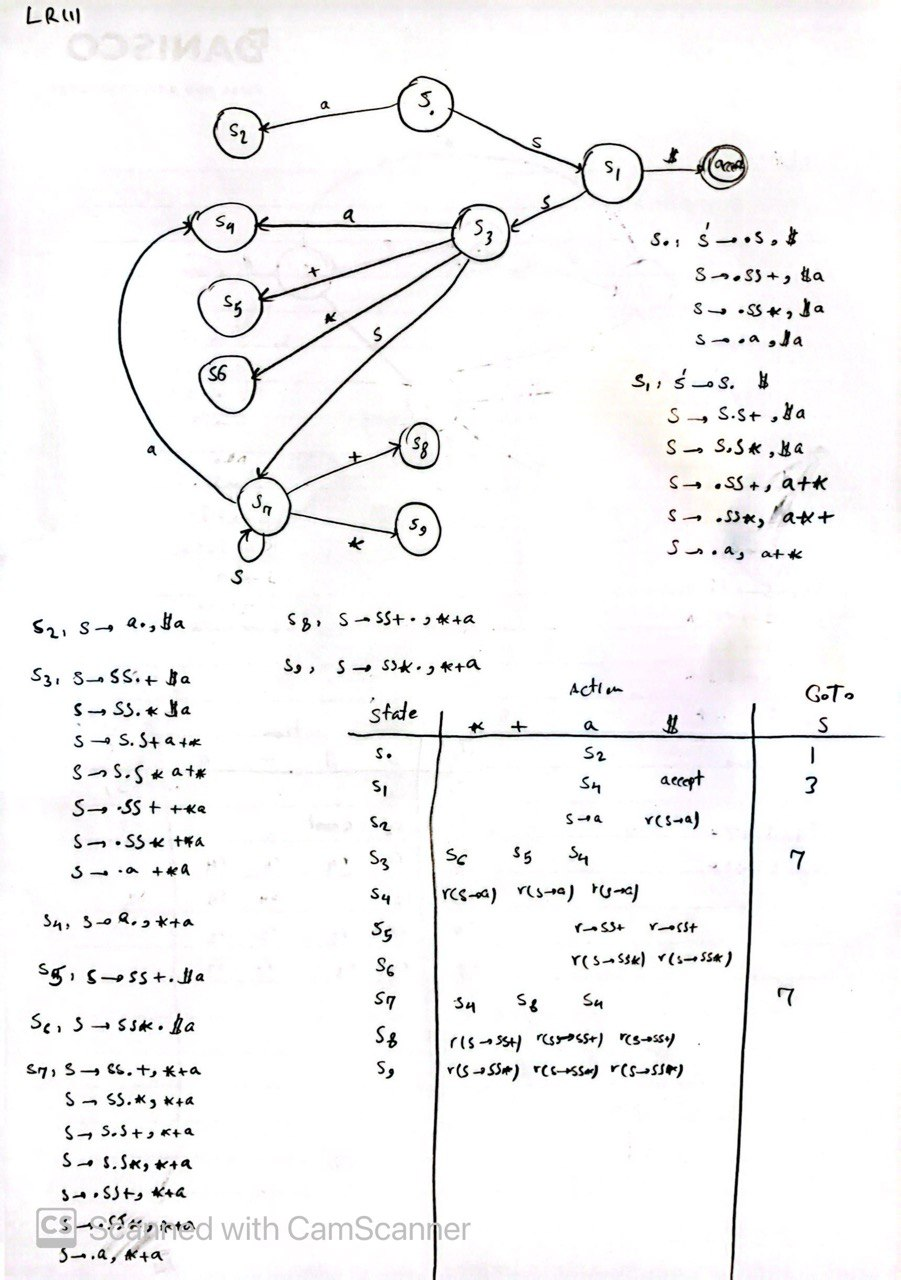 LR(1)
S.
a
S2
S
S1
$
accept
S
S3
a
S4
+
S5
*
S6
S
a
S7
+
S8
*
S9
S
S0: S' → .S, $
S → .SS+, $a
S → .SS*, $a
S → .a, $a
S1: S' → S. $
S → S.S+, $a
S → S.S*, $a
S → .SS+, a+*
S → .SS*, a*+
S → .a, a+*
S2: S → a., $a
S3: S → SS.+ $a
S → SS.* $a
S → S.S+ a+*
S → S.S* a+*
S → .SS+ +*a
S → .SS* +*a
S → .a +*a
S4, S → a., *+a
S5: S → SS+. $a
S6, S → SS*. $a
S7, S → SS.+, *+a
S → SS.*, *+a
S → S.S+, *+a
S → S.S*, *+a
S → .SS+, *+a
S → .SS*, *+a
S → .a, *+a
S8, S → SS+., *+a
S9, S → SS*., *+a
Action GoTo
State * + a $ S
S. S2 1
S1 S4 accept 3
S2 S→a r(S→a)
S3 S6 S5 S4 7
S4 r(S→a) r(S→a) r(S→a)
S5 r→SS+ r→SS+
S6 r(S→SS*) r(S→SS*)
S7 S4 S8 S4 7
S8 r(S→SS+) r(S→SS+) r(S→SS+)
S9 r(S→SS*) r(S→SS*) r(S→SS*)
CS Scanned with CamScanner